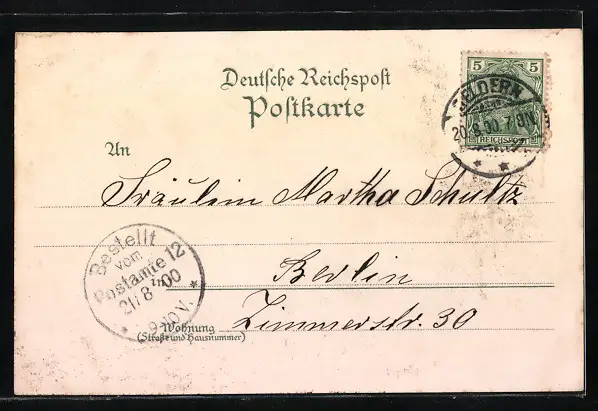 Deutsche Reichspost
Postkarte
5 5
REICHSPOST
GELDERN
20.8.00.7-8N.
An
Fräulein Martha Schultz
Bestellt
vom
Postamte 12
21/8 00
9-10V.
Berlin
Wohnung
(Straße und Hausnummer)
Zimmerstr. 30